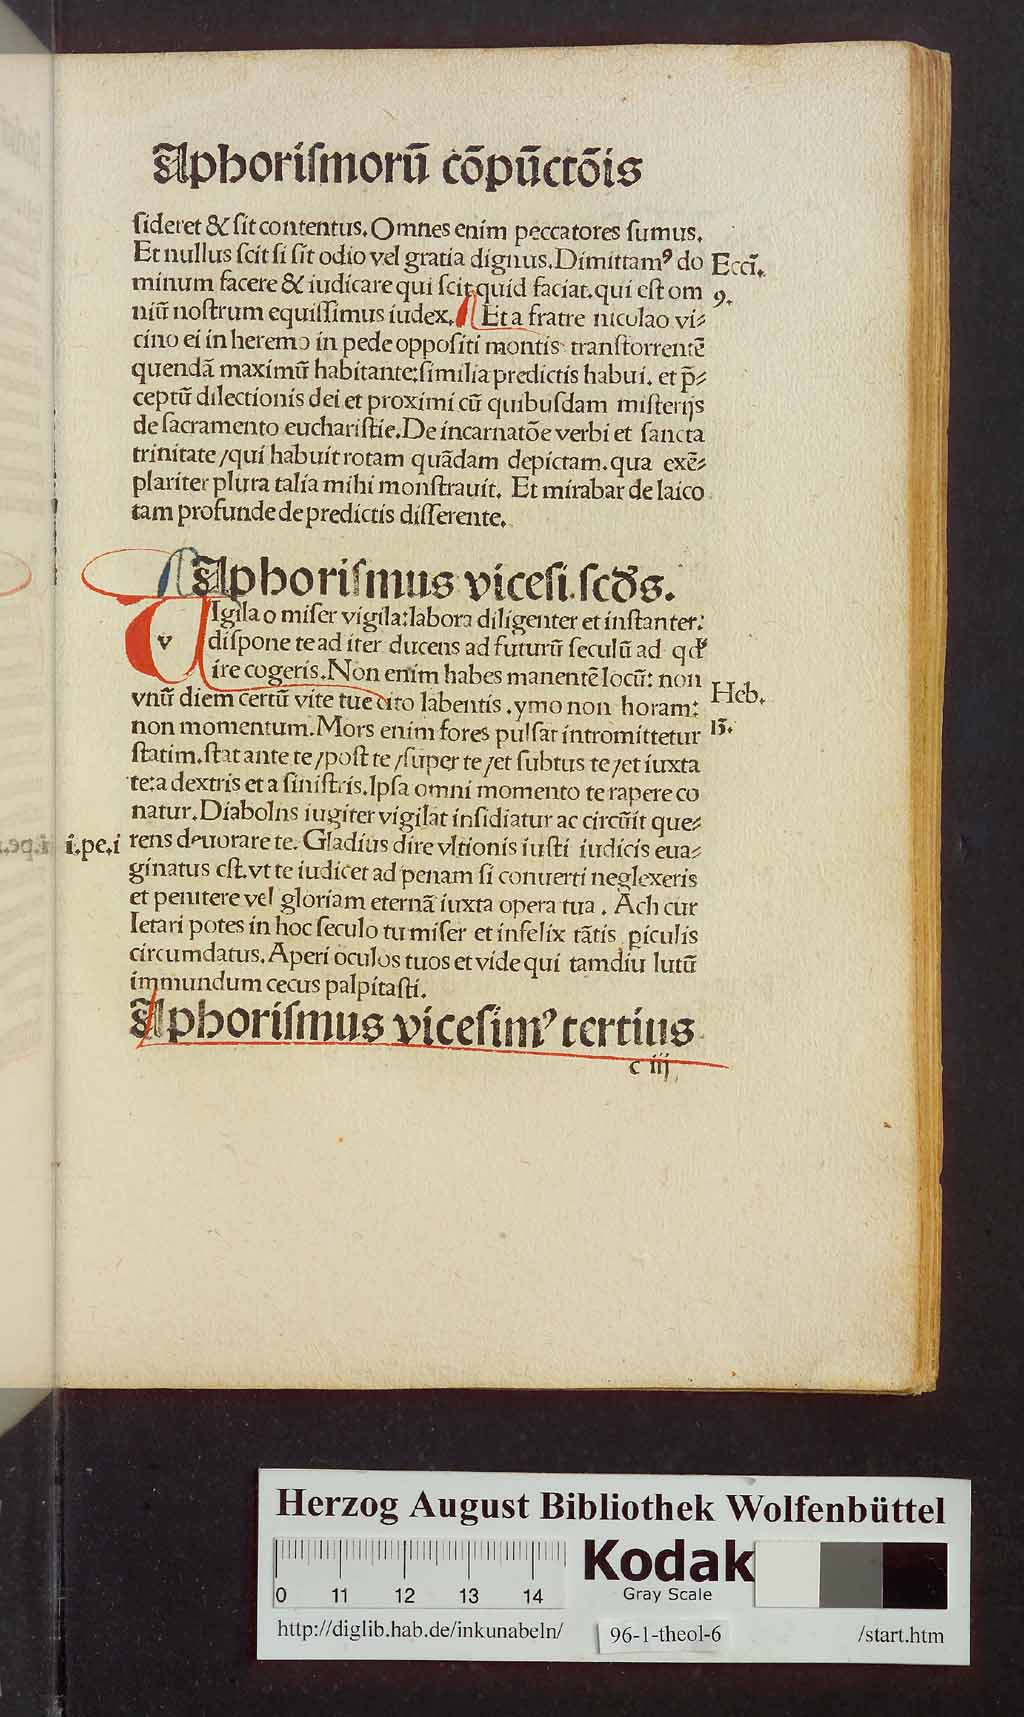 Aphoriſmorū cōpūctōis
ſideret & ſit contentus. Omnes enim peccatores ſumus.
Et nullus ſcit ſi ſit odio vel gratia dignus. Dimittamꝰ do
Eccī.
minum facere & iudicare qui ſcit quid faciat. qui eſt om
9.
niū noſtrum equiſſimus iudex. Et a fratre nicolao vi⸗
cino ei in heremo in pede oppoſiti montis tranſtorrentē
quendā maximū habitante: ſimilia predictis habui. et p̄⸗
ceptū dilectionis dei et proximi cū quibuſdam miſterijs
de ſacramento euchariſtie. De incarnatōe verbi et ſancta
trinitate / qui habuit rotam quādam depictam. qua exē⸗
plariter plura talia mihi monſtrauit. Et mirabar de laico
tam profunde de predictis diſſerente.
Aphoriſmus viceſi. ſcd̄s.
v
VIgila o miſer vigila: labora diligenter et inſtanter:
diſpone te ad iter ducens ad futurū ſeculū ad qd̄
ire cogeris. Non enim habes manentē locū: non
Heb.
vnū diem certū vite tue cito labentis . ymo non horam:
non momentum. Mors enim fores pulſat intromittetur
13.
ſtatim. ſtat ante te / poſt te / ſuper te / et ſubtus te / et iuxta
te: a dextris et a ſiniſtris. Ipſa omni momento te rapere co
natur. Diabolns iugiter vigilat inſidiatur ac circūit que⸗
i.pe.i
rens deuorare te. Gladius dire vltionis iuſti iudicis eua⸗
ginatus eſt. vt te iudicet ad penam ſi conuerti neglexeris
et penitere vel gloriam eternā iuxta opera tua . Ach cur
letari potes in hoc ſeculo tu miſer et infelix tātis ꝑiculis
circumdatus. Aperi oculos tuos et vide qui tamdiu lutū
immundum cecus palpitaſti.
Aphoriſmus viceſimꝰ tertius
c iij
Herzog August Bibliothek Wolfenbüttel
0 11 12 13 14
Kodak
Gray Scale
http://diglib.hab.de/inkunabeln/ 96-1-theol-6 /start.htm